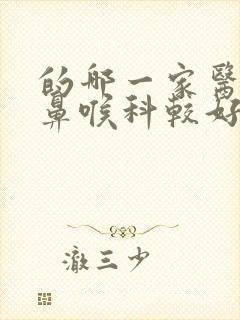 的哪一家醫
鼻喉科較好
澈三少